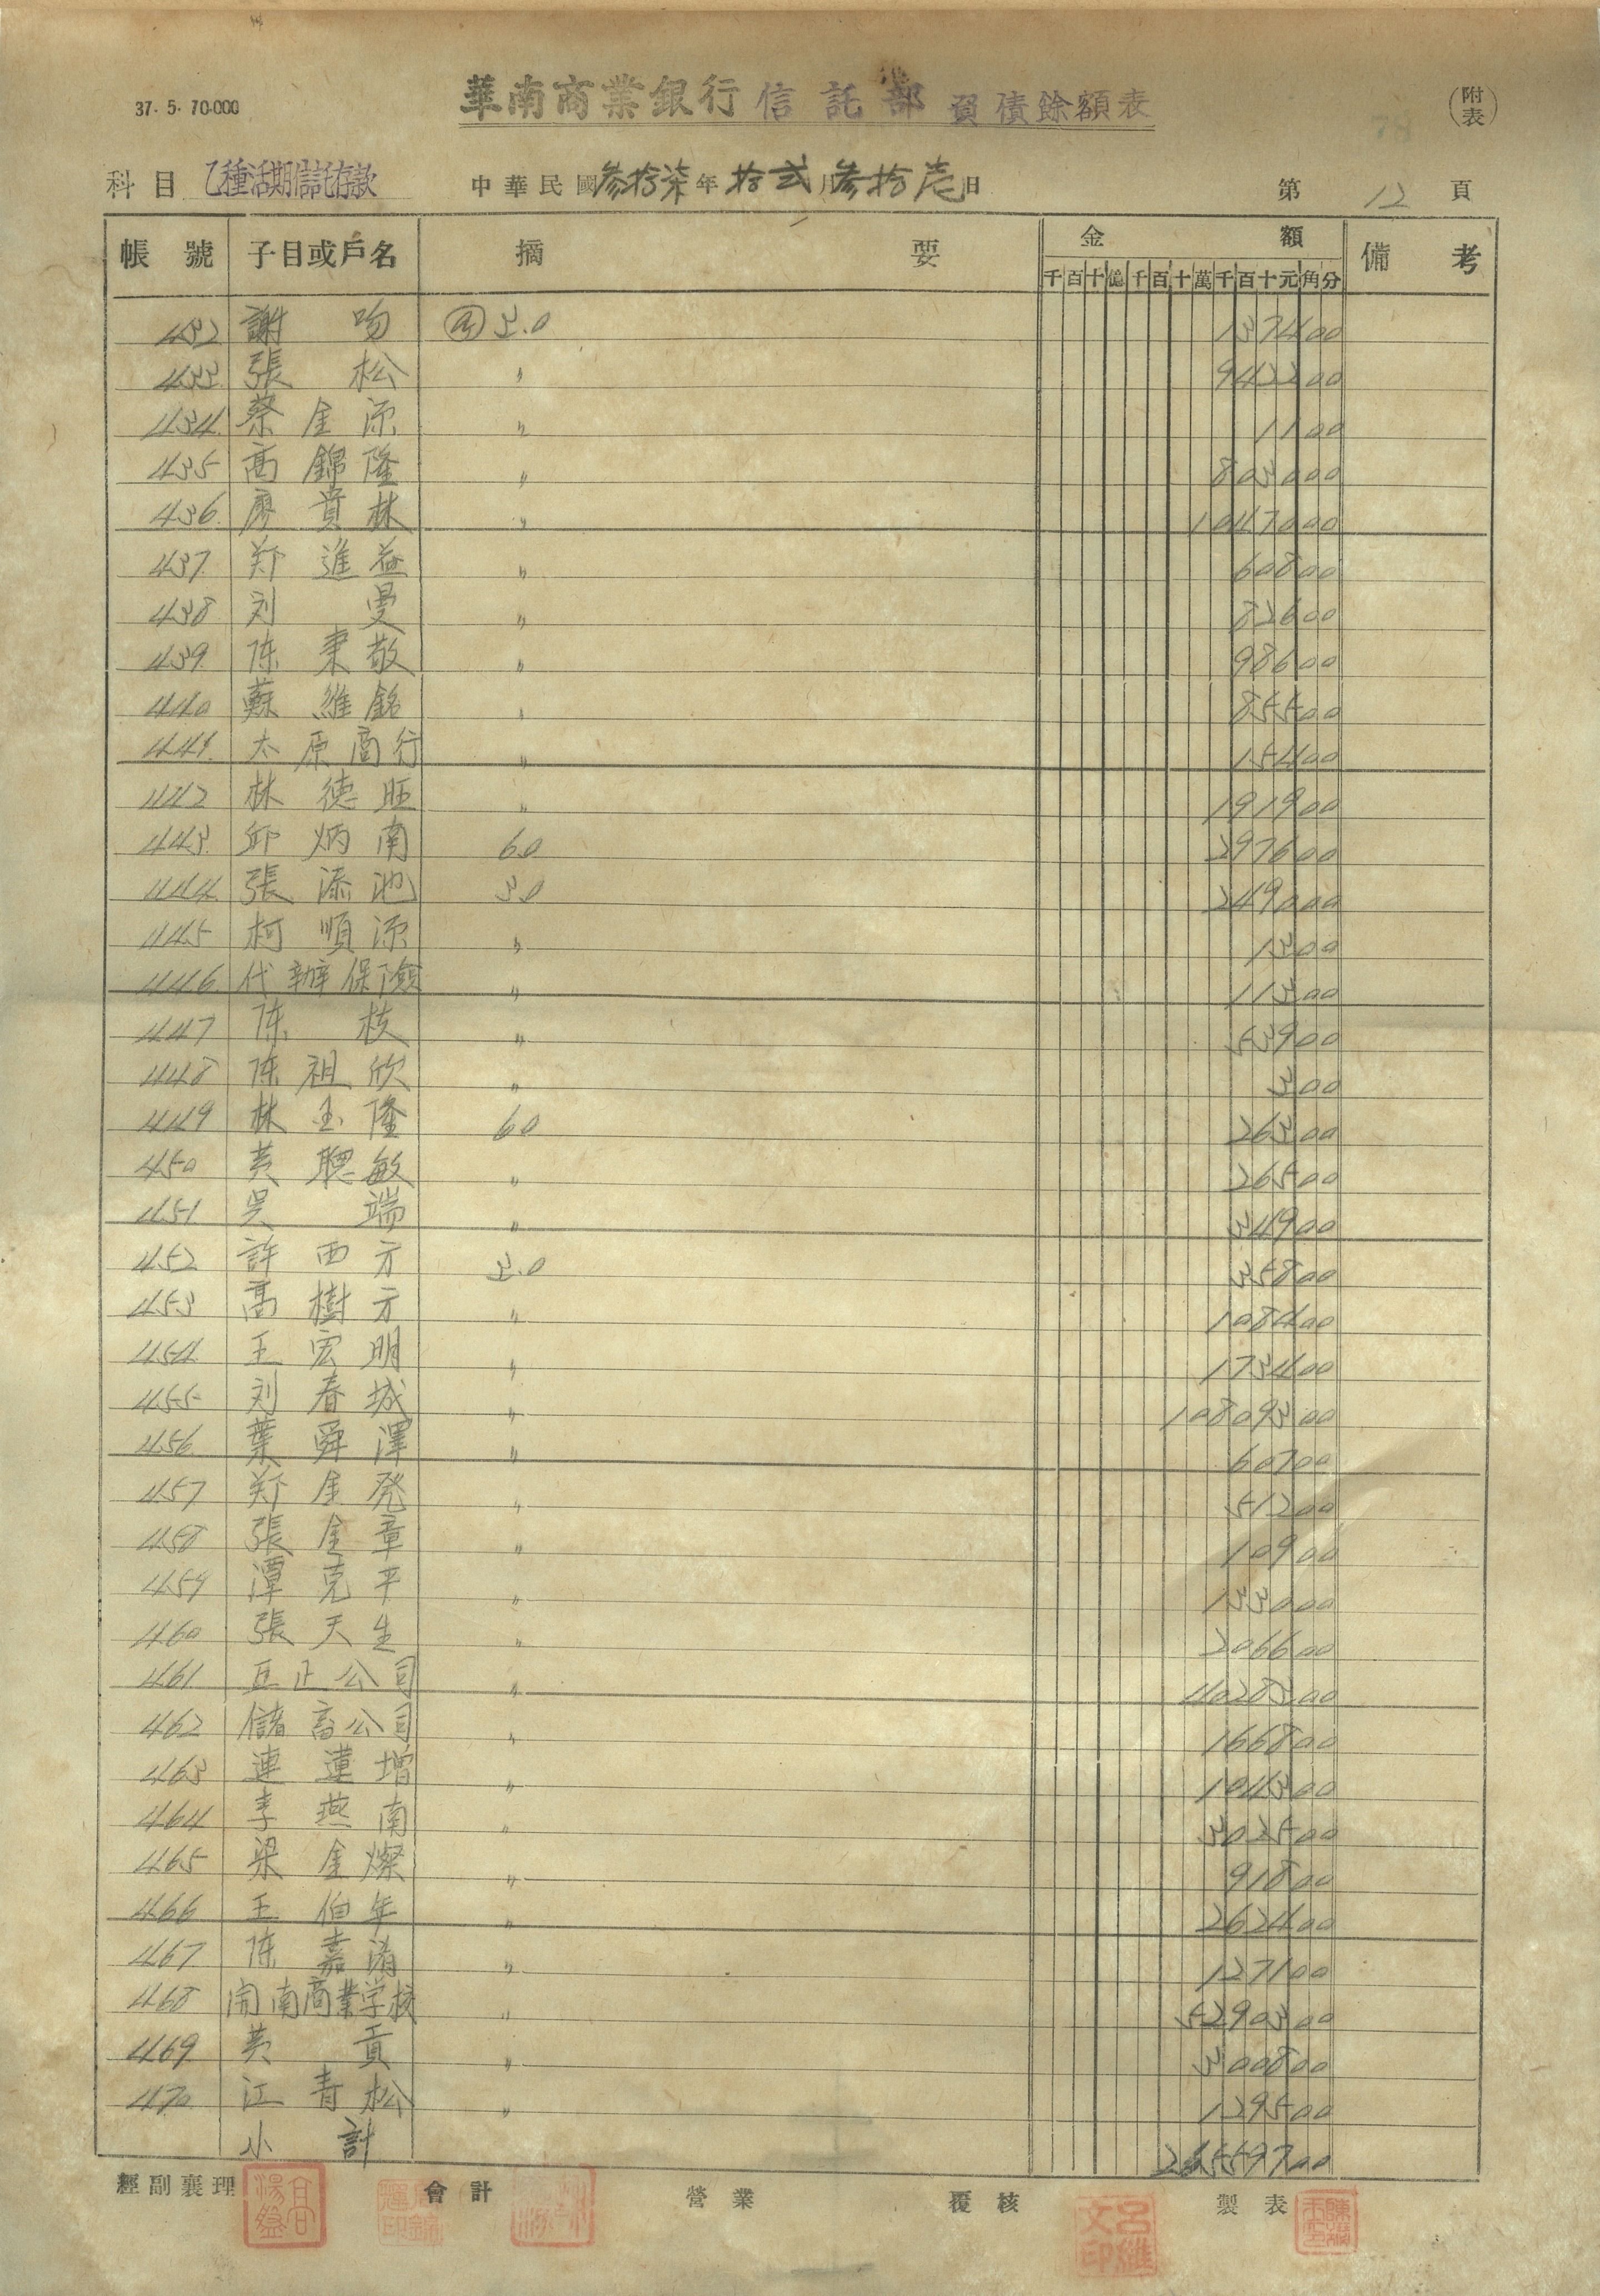 37. 5. 70.000
華南商業銀行信託部資債餘額表
(附表)
科目 乙種活期信託存款 中華民國叁拾柒年拾弍月叁拾壱日 第 12 頁
帳號 子目或戶名 摘要 金額 備考
千百十億千百十萬千百十元角分
432 謝吻 3.0 1374.00
433 張松 〃 9422.00
434 蔡金源 〃 11.00
435 高錦隆 〃 8030.00
436 廖貴林 〃 10470.00
437 郑進益 〃 608.00
438 刘曼 〃 826.00
439 陈秉敬 〃 986.00
440 蘇維銘 〃 855.00
441 太原商行 〃 154.00
442 林德旺 〃 1919.00
443 邱炳南 6.0 2976.00
444 張添池 3.0 2490.00
445 柯順源 〃 13.00
446 代辦保險 〃 113.00
447 陈枝 〃 539.00
448 陈祖欣 〃 3.00
449 林玉隆 6.0 263.00
450 黄聰敏 〃 265.00
451 吳端 〃 349.00
452 許西方 3.0 358.00
453 高樹方 〃 1084.00
454 王宏明 〃 1734.00
455 刘春城 〃 108093.00
456 葉舜澤 〃 607.00
457 郑金発 〃 512.00
458 張金章 〃 109.00
459 潭克平 〃 1330.00
460 張天生 〃 2066.00
461 互正公司 〃 40283.00
462 儲畜公司 〃 1668.00
463 連蓮增 〃 1043.00
464 李燕南 〃 3025.00
465 梁金燦 〃 918.00
466 王伯年 〃 2624.00
467 陈嘉濱 〃 1271.00
468 開南商業学校 〃 52903.00
469 黄貢 〃 3008.00
470 江青松 〃 1295.00
小計 265597.00
經副襄理 會計 營業 覆核 製表